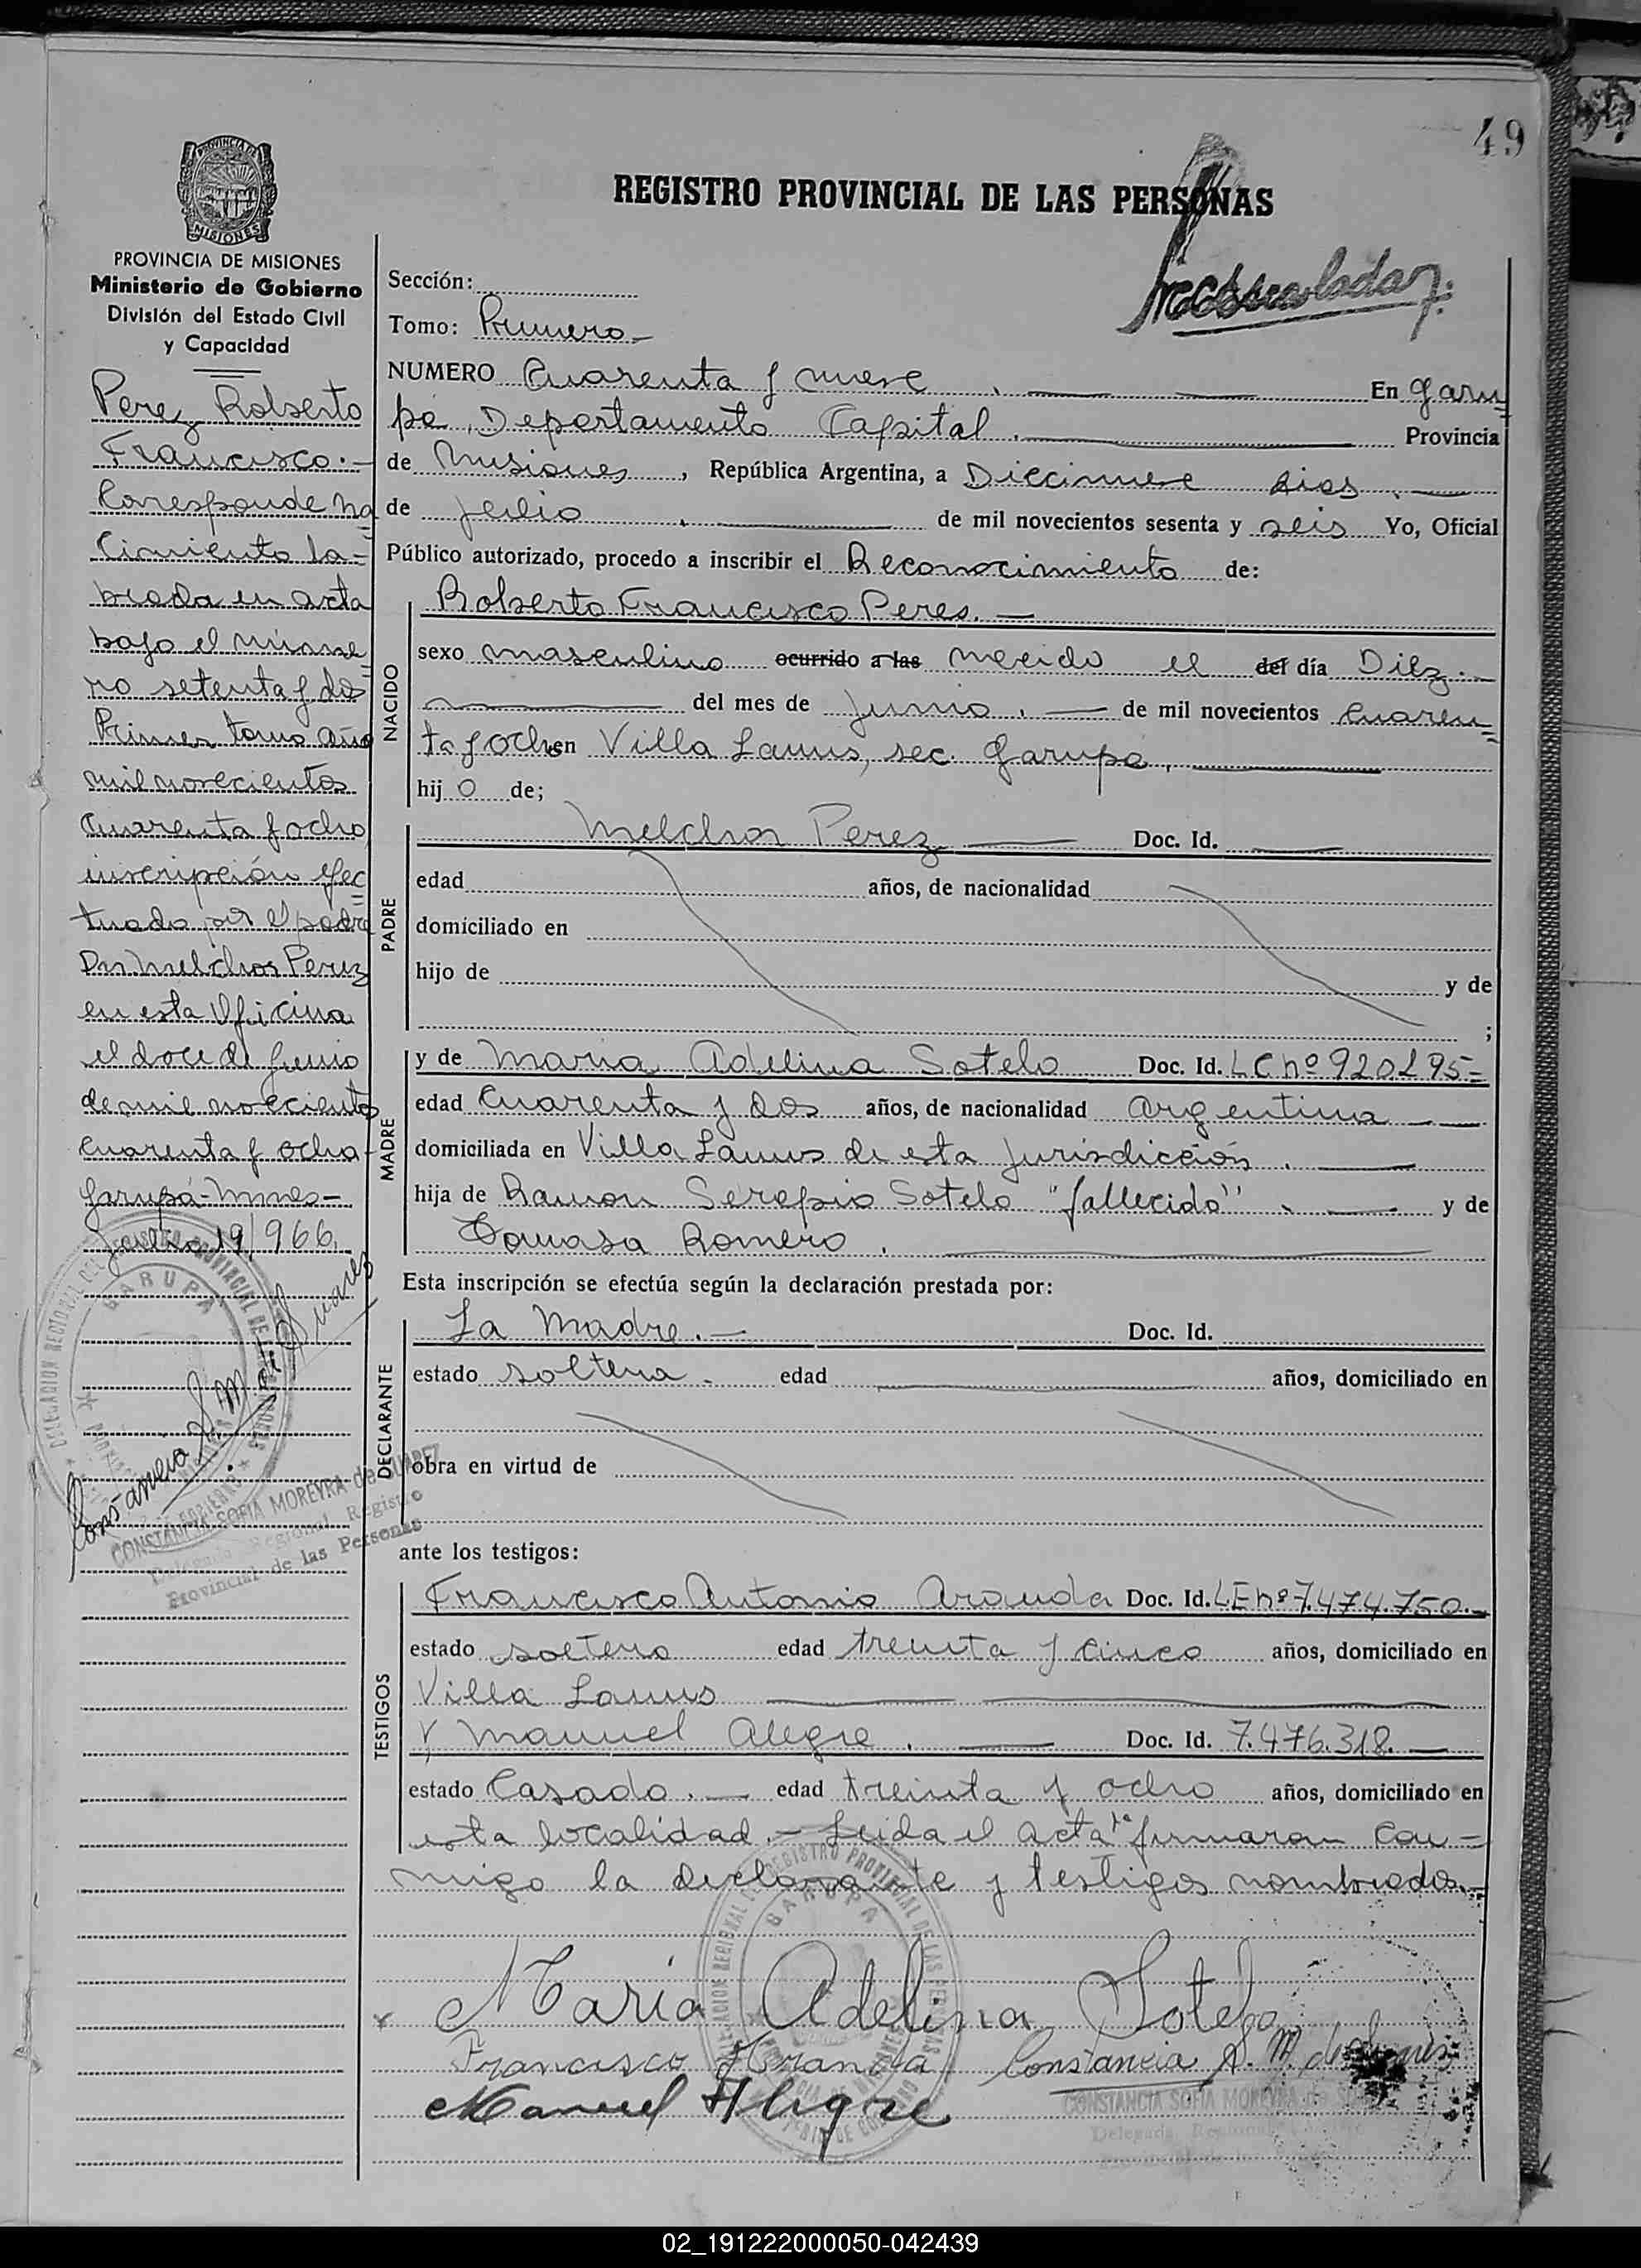 49
REGISTRO PROVINCIAL DE LAS PERSONAS
PROVINCIA DE MISIONES
Ministerio de Gobierno
División del Estado Civil
y Capacidad
Perez Roberto
Francisco.-
Corresponde na
cimiento la=
brada en acta
bajo el núme
ro setenta y dos
Primer tomo año
mil novecientos
cuarenta y ocho
inscripción efec
tuada por el padre
Don Melchor Perez
en esta Oficina
el doce de Junio
de mil novecientos
cuarenta y ocho-
Garupá-Mnes-
Julio 19/966.
Constancia S. M. de Suarez
DELEGACION REGIONAL DEL REGISTRO PROVINCIAL DE LAS PERSONAS
GARUPA
CONSTANCIA SOFIA MOREYRA de SUAREZ
Delegada Regional Registro
Provincial de las Personas
Sección:
Tomo: Primero-
NUMERO Cuarenta y nueve . En Garu
pá, Departamento Capital . Provincia
de Misiones, República Argentina, a Diecinueve dias .
de Julio . de mil novecientos sesenta y seis Yo, Oficial
Público autorizado, procedo a inscribir el Reconocimiento de:
NACIDO
Roberto Francisco Peres. -
sexo masculino ocurrido a las nacido el del día Diez.-
del mes de Junio . de mil novecientos cuaren
ta y ocho en Villa Lanus, sec. Garupa .
hij o de;
PADRE
Melchor Perez Doc. Id.
edad años, de nacionalidad
domiciliado en
hijo de y de
;
MADRE
y de Maria Adelina Sotelo Doc. Id. LC nº 920195=
edad Cuarenta y dos años, de nacionalidad argentina
domiciliada en Villa Lanus de esta Jurisdicción .
hija de Ramon Serapio Sotelo "fallecido" . y de
Tomasa Romero .
Esta inscripción se efectúa según la declaración prestada por:
DECLARANTE
La Madre.- Doc. Id.
estado soltera . edad años, domiciliado en
obra en virtud de
ante los testigos:
TESTIGOS
Francisco Antonio Aranda Doc. Id. LE nº 7.474.750.-
estado soltero edad treinta y cinco años, domiciliado en
Villa Lanus
Y, Manuel Alegre . Doc. Id. 7.476.318.
estado Casado . edad treinta y ocho años, domiciliado en
esta localidad.- Leida el acta la firmaron con-
migo la declarante y testigos nombrados.-
María Adelina Sotelo
Francisco Aranda Constancia S. M. de Suarez
Manuel Alegre
DELEGACION REGIONAL DEL REGISTRO PROVINCIAL DE LAS PERSONAS
GARUPA
CONSTANCIA SOFIA MOREYRA de
Delegada Regional
02_191222000050-042439